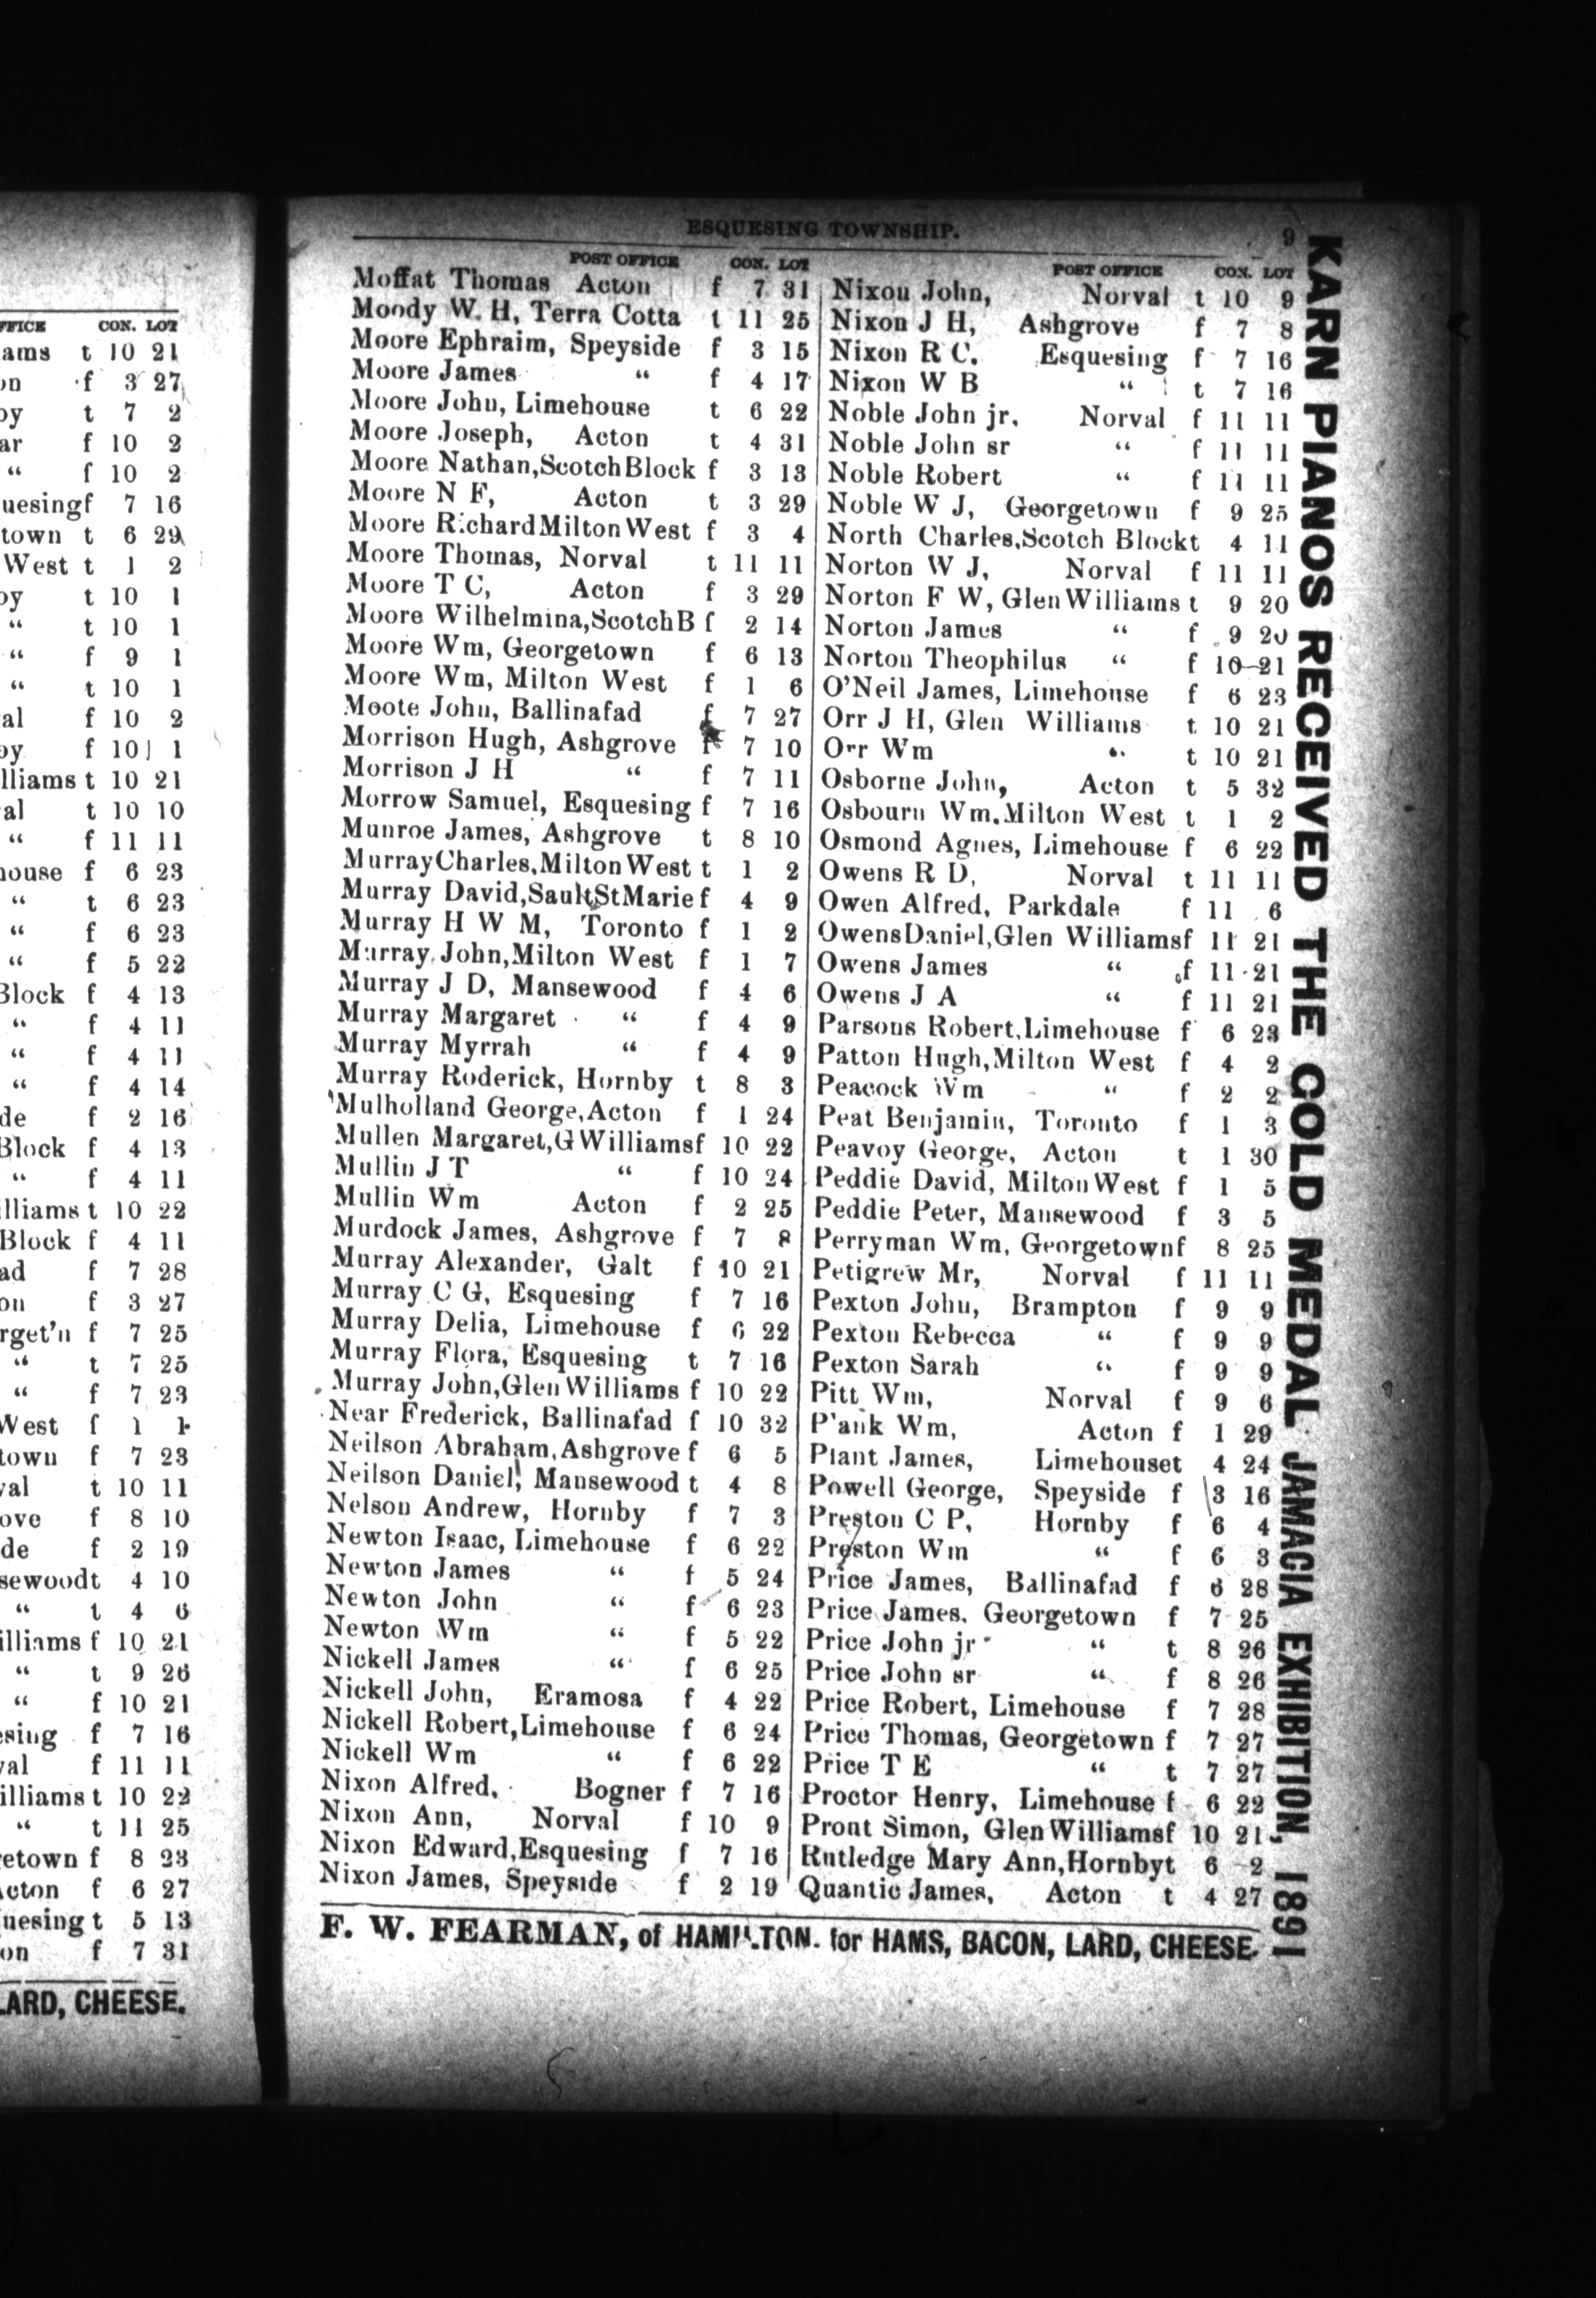 FFICE CON. LOT
ams t 10 21
on f 3 27
oy t 7 2
ar f 10 2
“ f 10 2
uesingf 7 16
town t 6 29
West t 1 2
oy t 10 1
“ t 10 1
“ f 9 1
“ t 10 1
al f 10 2
oy f 10 1
lliams t 10 21
al t 10 10
“ f 11 11
house f 6 23
“ t 6 23
“ f 6 23
“ f 5 22
Block f 4 13
“ f 4 11
“ f 4 11
“ f 4 14
de f 2 16
Block f 4 13
“ f 4 11
illiams t 10 22
Block f 4 11
ad f 7 28
on f 3 27
rget'n f 7 25
“ t 7 25
“ f 7 23
West f 1 1
town f 7 23
val t 10 11
ove f 8 10
de f 2 19
sewoodt 4 10
“ t 4 6
illiams f 10 21
“ t 9 26
“ f 10 21
esing f 7 16
val f 11 11
illiams t 10 22
“ t 11 25
etown f 8 23
Acton f 6 27
uesing t 5 13
on f 7 31
LARD, CHEESE.
ESQUESING TOWNSHIP. 9
POST OFFICE CON. LOT
Moffat Thomas Acton f 7 31
Moody W. H, Terra Cotta t 11 25
Moore Ephraim, Speyside f 3 15
Moore James “ f 4 17
Moore John, Limehouse t 6 22
Moore Joseph, Acton t 4 31
Moore Nathan,ScotchBlock f 3 13
Moore N F, Acton t 3 29
Moore RichardMiltonWest f 3 4
Moore Thomas, Norval t 11 11
Moore T C, Acton f 3 29
Moore Wilhelmina,ScotchB f 2 14
Moore Wm, Georgetown f 6 13
Moore Wm, Milton West f 1 6
Moote John, Ballinafad f 7 27
Morrison Hugh, Ashgrove f 7 10
Morrison J H “ f 7 11
Morrow Samuel, Esquesing f 7 16
Munroe James, Ashgrove t 8 10
MurrayCharles,MiltonWest t 1 2
Murray David,SaultStMarie f 4 9
Murray H W M, Toronto f 1 2
Murray John,Milton West f 1 7
Murray J D, Mansewood f 4 6
Murray Margaret “ f 4 9
Murray Myrrah “ f 4 9
Murray Roderick, Hornby t 8 3
Mulholland George,Acton f 1 24
Mullen Margaret,GWilliamsf 10 22
Mullin J T “ f 10 24
Mullin Wm Acton f 2 25
Murdock James, Ashgrove f 7 8
Murray Alexander, Galt f 10 21
Murray C G, Esquesing f 7 16
Murray Delia, Limehouse f 6 22
Murray Flora, Esquesing t 7 16
Murray John,Glen Williams f 10 22
Near Frederick, Ballinafad f 10 32
Neilson Abraham,Ashgrove f 6 5
Neilson Daniel, Mansewood t 4 8
Nelson Andrew, Hornby f 7 3
Newton Isaac, Limehouse f 6 22
Newton James “ f 5 24
Newton John “ f 6 23
Newton Wm “ f 5 22
Nickell James “ f 6 25
Nickell John, Eramosa f 4 22
Nickell Robert,Limehouse f 6 24
Nickell Wm “ f 6 22
Nixon Alfred, Bogner f 7 16
Nixon Ann, Norval f 10 9
Nixon Edward,Esquesing f 7 16
Nixon James, Speyside f 2 19
POST OFFICE CON. LOT
Nixou John, Norval t 10 9
Nixon J H, Ashgrove f 7 8
Nixon R C. Esquesing f 7 16
Nixon W B “ t 7 16
Noble John jr. Norval f 11 11
Noble John sr “ f 11 11
Noble Robert “ f 11 11
Noble W J, Georgetown f 9 25
North Charles,Scotch Blockt 4 11
Norton W J, Norval f 11 11
Norton F W, GlenWilliams t 9 20
Norton James “ f 9 20
Norton Theophilus “ f 10 21
O'Neil James, Limehouse f 6 23
Orr J H, Glen Williams t 10 21
Orr Wm “ t 10 21
Osborne John, Acton t 5 32
Osbourn Wm,Milton West t 1 2
Osmond Agnes, Limehouse f 6 22
Owens R D, Norval t 11 11
Owen Alfred, Parkdale f 11 6
OwensDaniel,Glen Williamsf 11 21
Owens James “ f 11 21
Owens J A “ f 11 21
Parsons Robert,Limehouse f 6 23
Patton Hugh,Milton West f 4 2
Peacock Wm “ f 2 2
Peat Benjamin, Toronto f 1 3
Peavoy George, Acton t 1 30
Peddie David, MiltonWest f 1 5
Peddie Peter, Mansewood f 3 5
Perryman Wm, Georgetownf 8 25
Petigrew Mr, Norval f 11 11
Pexton John, Brampton f 9 9
Pexton Rebecca “ f 9 9
Pexton Sarah “ f 9 9
Pitt Wm, Norval f 9 6
P'ank Wm, Acton f 1 29
Plant James, Limehouset 4 24
Powell George, Speyside f 3 16
Preston C P, Hornby f 6 4
Preston Wm “ f 6 3
Price James, Ballinafad f 6 28
Price James. Georgetown f 7 25
Price John jr “ t 8 26
Price John sr “ f 8 26
Price Robert, Limehouse f 7 28
Price Thomas, Georgetown f 7 27
Price T E “ t 7 27
Proctor Henry, Limehouse f 6 22
Pront Simon, GlenWilliamsf 10 21
Rutledge Mary Ann,Hornbyt 6 2
Quantic James, Acton t 4 27
F. W. FEARMAN, of HAMILTON. for HAMS, BACON, LARD, CHEESE.
KARN PIANOS RECEIVED THE GOLD MEDAL JAMACIA EXHIBITION, 1891